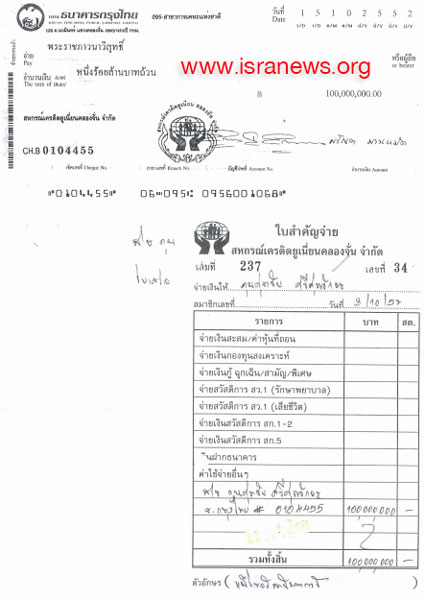 บมจ. ธนาคารกรุงไทย
095-สาขาการเคหะแห่งชาติ
วันที่ 1 5 1 0 2 5 5 2
Date
จ่าย พระราชภาวนาวิสุทธิ์
หรือผู้ถือ
Pay
or bearer
www.isranews.org
จำนวนเงิน หนึ่งร้อยล้านบาทถ้วน
The sum of
฿ 100,000,000.00
สหกรณ์เครดิตยูเนี่ยนคลองจั่น จำกัด
CH.B 0104455
เช็คเลขที่ Cheque No.
บัญชีเลขที่ Account No.
จำนวนเงิน Amount
0104455 06 095 0956001068
ใบสำคัญจ่าย
สหกรณ์เครดิตยูเนี่ยนคลองจั่น จำกัด
เล่มที่ 237 เลขที่ 34
จ่ายเงินให้ คุณศุภชัย ศรีศุภอักษร
สมาชิกเลขที่ วันที่
รายการ บาท สต.
จ่ายเงินสะสม/ค่าหุ้นที่ถอน
จ่ายเงินกองทุนสงเคราะห์
จ่ายเงินกู้ ฉุกเฉิน/สามัญ/พิเศษ
จ่ายสวัสดิการ สว.1 (รักษาพยาบาล)
จ่ายสวัสดิการ สว.1 (เสียชีวิต)
จ่ายเงินสวัสดิการ สก.1-2
จ่ายเงินสวัสดิการ สก.5
เงินฝากธนาคาร
ค่าใช้จ่ายอื่นๆ
คุณศุภชัย ศรีศุภอักษร
ธ.กรุงไทย # 0104455 100,000,000 -
รวมทั้งสิ้น 100,000,000 -
ตัวอักษร ( หนึ่งร้อยล้านบาทถ้วน )